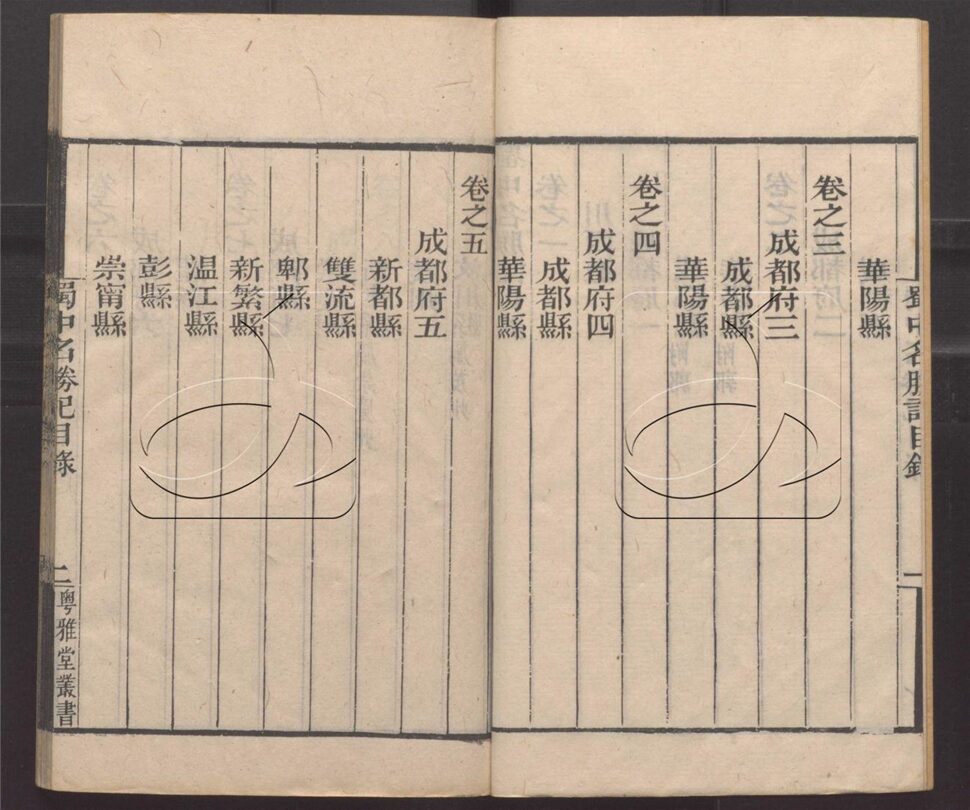 蜀中名勝記目錄
一
華陽縣
卷之三
成都府三
成都縣
華陽縣
卷之四
成都府四
成都縣
華陽縣
卷之五
成都府五
新都縣
雙流縣
郫縣
新繁縣
温江縣
彭縣
崇甯縣
蜀中名勝記目錄
二
粵雅堂叢書